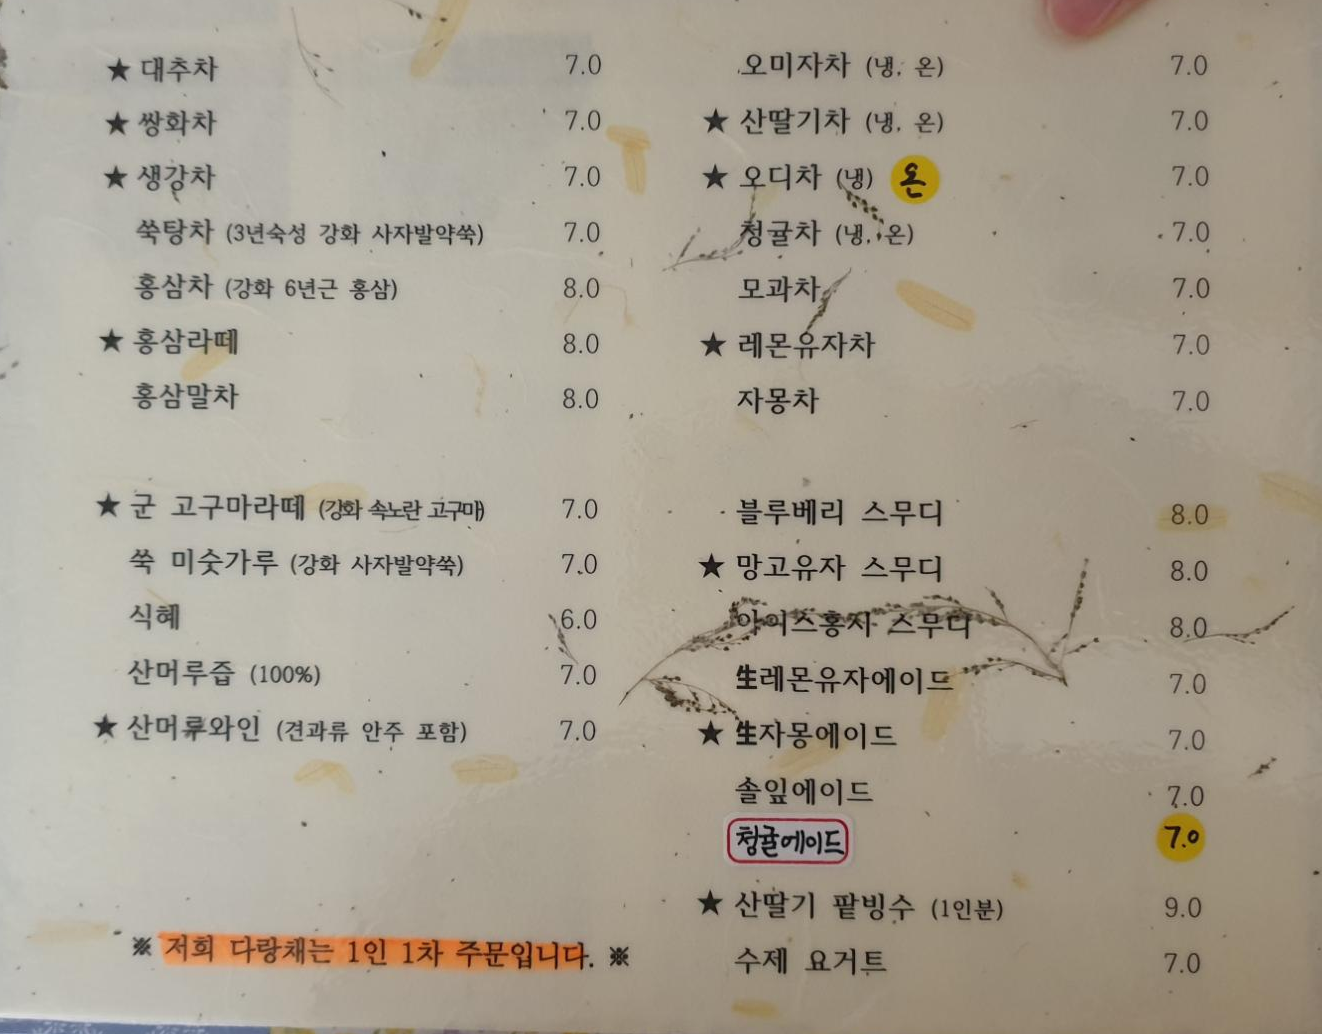 ★ 대추차 7.0
★ 쌍화차 7.0
★ 생강차 7.0
쑥탕차 (3년숙성 강화 사자발약쑥) 7.0
홍삼차 (강화 6년근 홍삼) 8.0
★ 홍삼라떼 8.0
홍삼말차 8.0
★ 군 고구마라떼 (강화 속노란 고구마) 7.0
쑥 미숫가루 (강화 사자발약쑥) 7.0
식혜 6.0
산머루즙 (100%) 7.0
★ 산머루와인 (견과류 안주 포함) 7.0
※ 저희 다랑채는 1인 1차 주문입니다. ※
오미자차 (냉, 온) 7.0
★ 산딸기차 (냉, 온) 7.0
★ 오디차 (냉) 온 7.0
청귤차 (냉, 온) 7.0
모과차 7.0
★ 레몬유자차 7.0
자몽차 7.0
블루베리 스무디 8.0
★ 망고유자 스무디 8.0
아이스홍시 스무디 8.0
生레몬유자에이드 7.0
★ 生자몽에이드 7.0
솔잎에이드 7.0
청귤에이드 7.0
★ 산딸기 팥빙수 (1인분) 9.0
수제 요거트 7.0